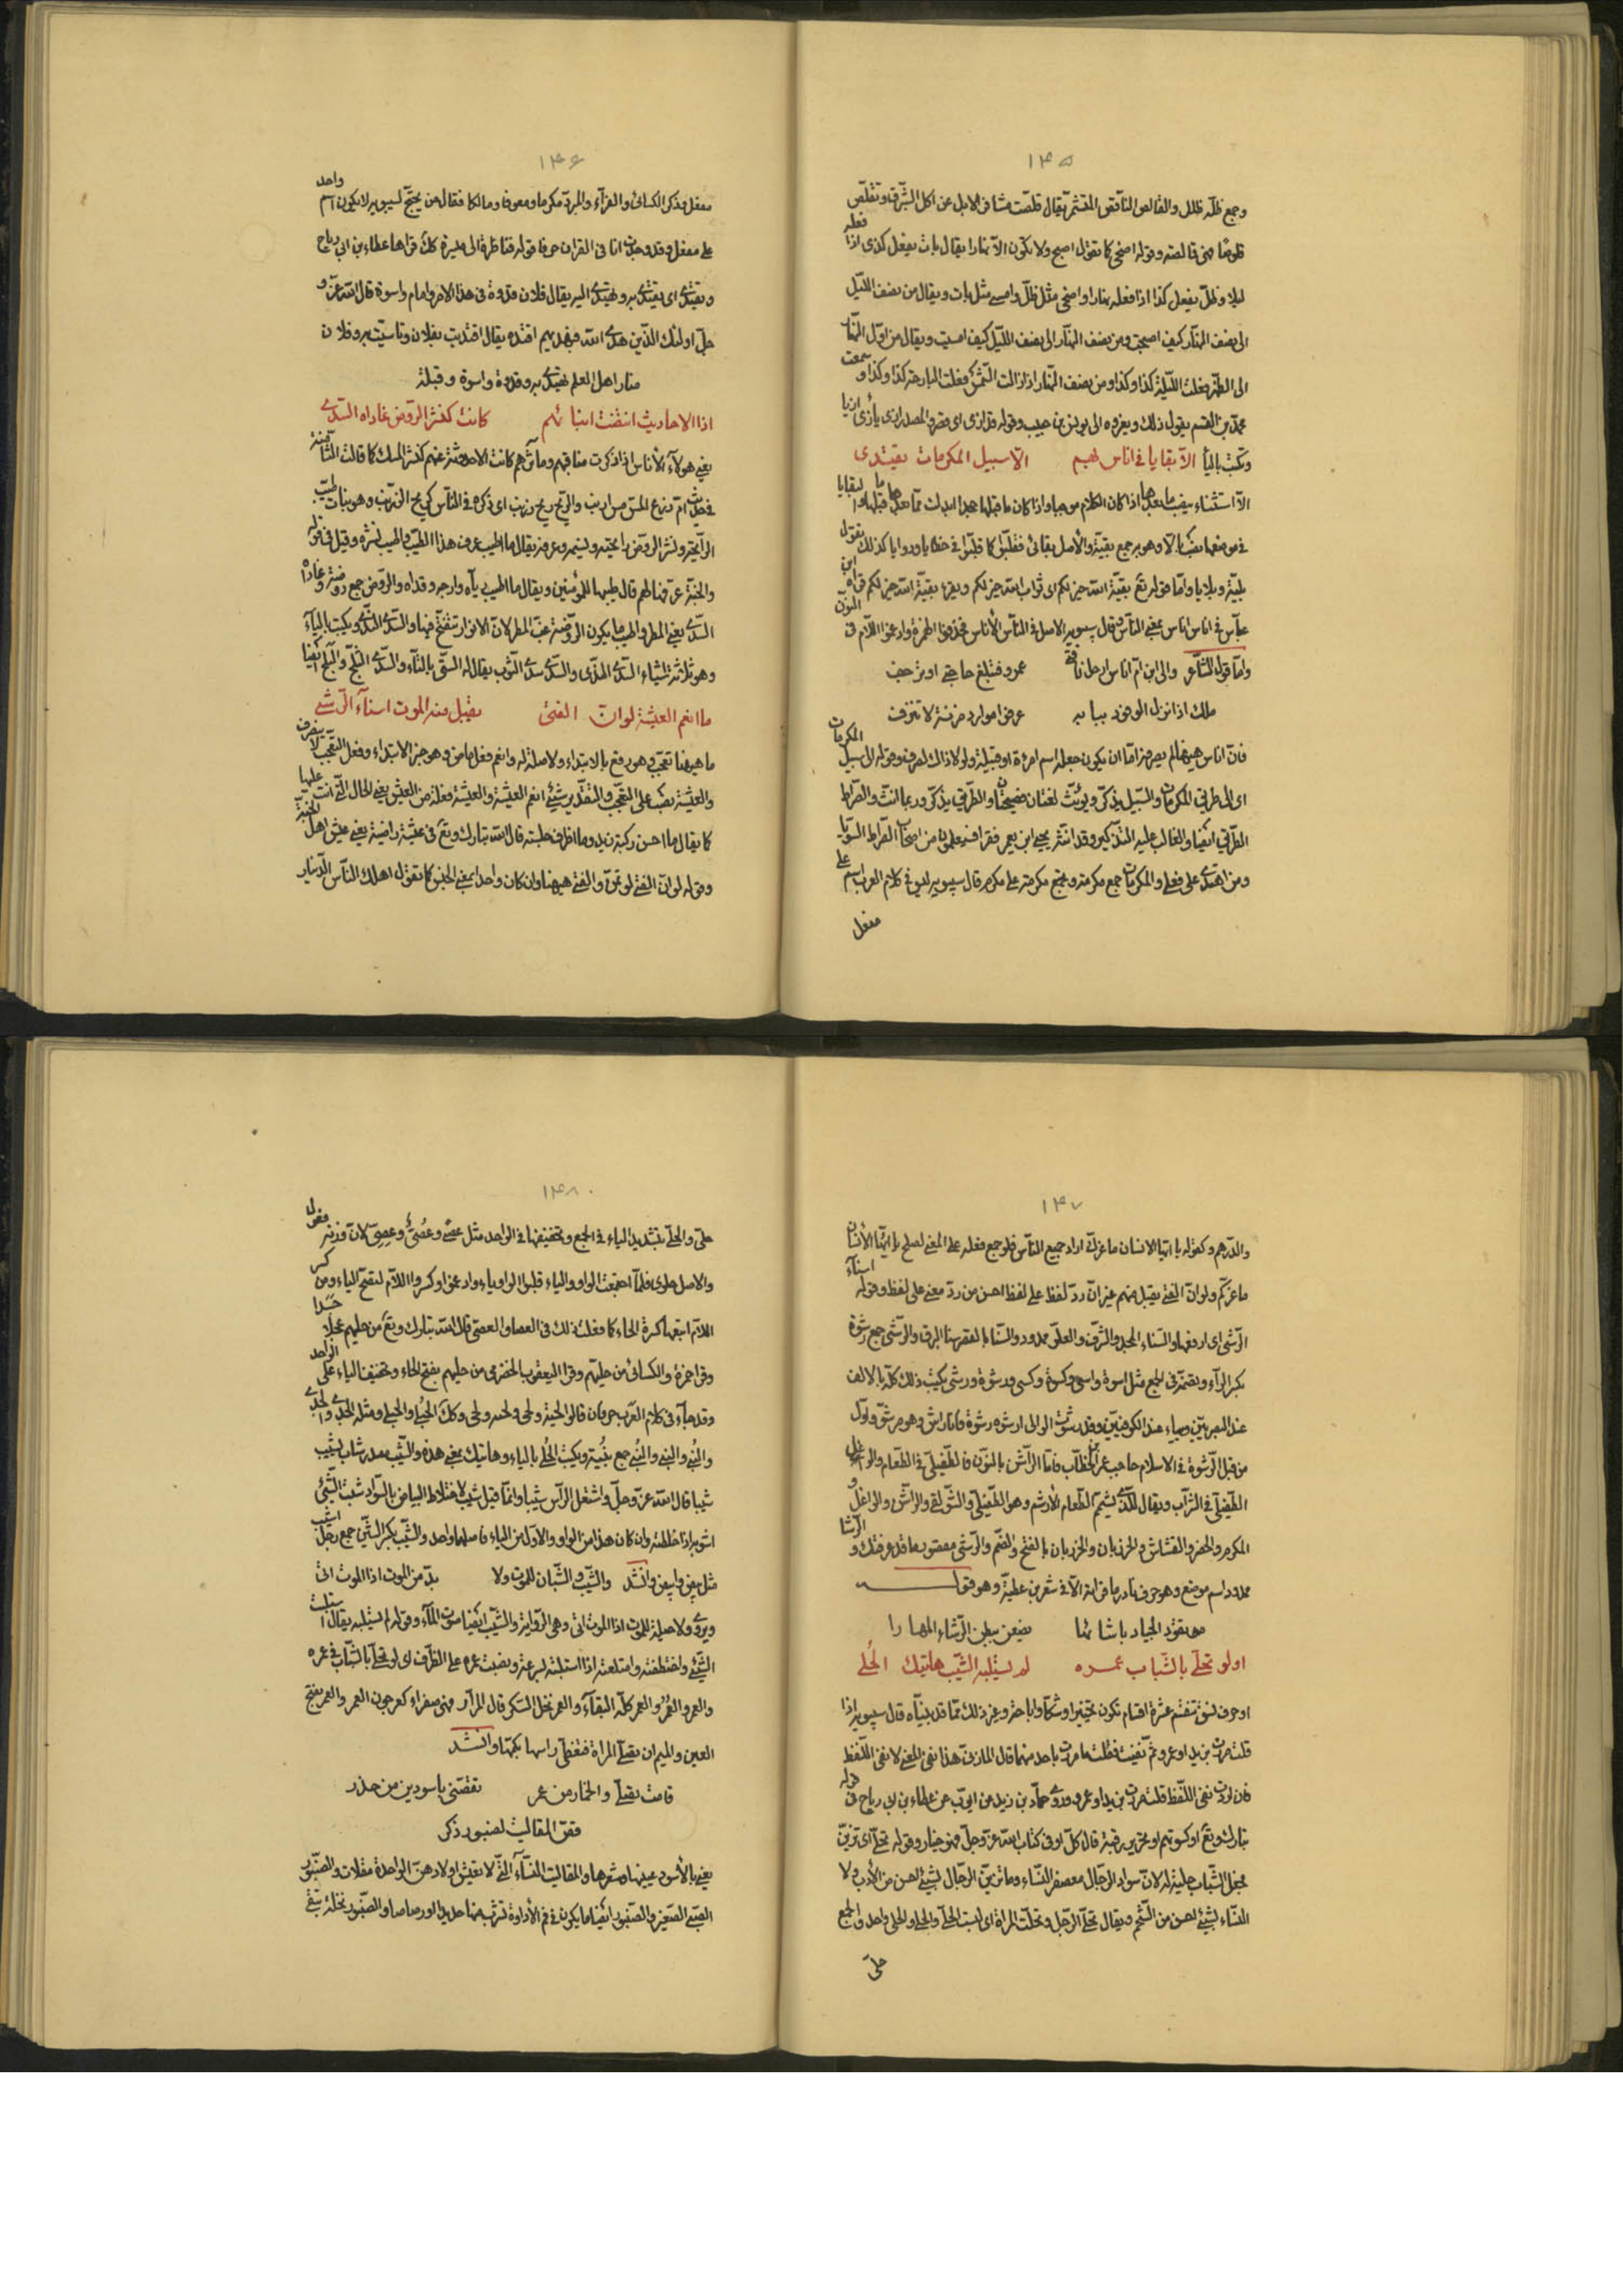 ۱۴۵
وجمع ظلّه ظلل والقالص الناقص المتشمر يقال قلصت مشافر الابل عن اكل الشرق وتقلص
قلوصًا فهى قالصة وقوله اضحى كما تقول اصبح ولا تكون الا نهارا يقال بات يفعل كذى اذا فعله
ليلا وظلّ يفعل كذا اذا فعله نهارا واضحى مثل ظلّ وامسى مثل بات ويقال من نصف الليل
الى نصف النهار كيف اصبحت ومن نصف النهار الى نصف الليل كيف امسيت ويقال من اوّل النهار
الى الظهر فعلت الليلة كذا وكذا ومن نصف النهار اذا زالت الشمس فعلت البارحة كذا وكذا وسمعت
محمد بن القسم يقول ذلك ويعزوه الى يونس بن حبيب وقوله قد ازى اى قصر والمصدر ازى يأزى ازيا
وتكتب بالياء الّا بقايا فى اناس بهم الى سبيل المكرمات يقتدى
الّا استثناء ينصب ما بعدها اذا كان الكلام موجبا واذا كان ما قبلها جحدا ابدلت ممّا بعدها ما قبلها والبقايا
فى موضعها نصب بالّا وهو جمع بقيّة والأصل بقائى فقلبوا كما قلبوا فى خطايا ودوايا كذلك تقول
بليّة وبلايا وامّا قوله تع بقيّة الله خير لكم اى ثواب الله خير لكم ويقرء بقيّة الله خير لكم قراه ابن
عبّاس فى اناس اناس بمعنى الناس قال سيبويه الاصل فى الناس الأناس فحذفوا الهمزة وادغموا اللام فى النون
وامّا قول الشاعر والى ابن امّ اناس ارحل ناقتى عمرو فتبلغ حاجتى او تزحف
ملك اذا نزل الوفود ببابه عرفوا موارد مزنة لا تنزف
فانّ اناس هيهنا لم يصرفه امّا ان يكون جعله اسم امرءة او قبيلة ولولا ذاك لصرف وقوله الى سبيل المكرمات
اى الى طرائق المكرمات والسبيل يذكّر ويؤنّث لغتان فصيحتان والطريق يذكّر وربما انّث والصراط
الطريق ايضا والغالب عليه التذكير وقد انّثه يحيى ابن يعمر فقرا فستعلمون من اصحاب الصراط السوى
ومن اهتدى على فعلى والمكرمات جمع مكرمة ويجمع مكرمة على مكرم قال سيبويه ليس فى كلام العرب اسم على
مفعل
۱۴۶
مفعل وذكر الكسائى والفرآء والمبرد مكرما ومعونا ومالكا فقال من يحتجّ لسيبويه لا يكون اسم واحد
على مفعل وقد وجدت انا فى القران حرفا قوله فناظرة الى ميسرة كذلك قراها عطاء بن ابى رباح
ويقتدى اى يقتدى به ويهتدى اليه يقال فلان قدوة فى هذا الامر وامام واسوة قال الله عزّ و
جلّ اولئك الذين هدى الله فبهديهم اقتده يقال اقتديت بفلان وتأسيت به وفلان
منار اهل العلم يهتدى به وقدوة واسوة وقبلة
اذا الاحاديث انتضت انبائهم كانت كنشر الروض غاداه السدى
يعنى هولآء الأناس اذا ذكرت مناقبهم ومآثرهم كانت الاحدوثة عنهم كنشر المسك كما قالت الثامنة
فى حديث امّ زرع المسّ مسّ ارنب والريح ريح زرنب اى ذكره فى الناس كريح الزرنب وهو نبات طيّب
الرآيحة ونشر الروض رايحته ونسيمه وعرفه يقال ما اطيب عرف هذا الطيب واطيب نشره وقيل فى قوله
والجنّة عرّفها لهم قال طيبها للمؤمنين ويقال ما اطيب ريّاه وارجه وقداه والروض جمع روضة وغاداه
السدى يعنى المطر واطيب ما يكون الروضة غبّ المطر لانّ الانوار تتفتّح فيها والسدى الندى ويكتب بالياء
وهو ثلاثة اشياء السدى الندى والسدى سدى الثوب يقال له الستى بالتاء والسدى البلح والبلح ايضا
ما انعم العيشة لو انّ الفتى يقبل منه الموت اسناء الرشى
ما هيهنا تعجّب وهو رفع بالابتداء ولا صلة له وانعم فعل ماض وهو خبر الابتداء وفعل التعجّب لا يتصرف
والعيشة نصب على التعجّب والتقدير شىء انعم العيشة والعيشة فعلة من العيش يعنى الحال التى انت عليها
كما يقال ما احسن ركبة زيد وما اظرف جلسته قال الله تبارك وتع فى عيشة راضية يعنى عيش اهل الجنّة
وقوله لو انّ الفتى لو تمنّ والفتى هيهنا وان كان واحدا بمعنى الجنس كما تقول اهلك الناس الدينار
۱۴۷
والدرهم وكقوله يا ايّها الانسان ما غرّك اراد جميع الناس فلو جمع فعله على المعنى لصلح يا ايّها الأناس
ما غرّكم ولو انّ الفتى يقبل منهم غير انّ ردّ لفظ على لفظ احسن من ردّ معنى على لفظ وقوله اسناء
الرشى اى ارفعها والسناء المجد والشرف والعلوّ ممدود والسنا بالقصر سنا البرق والرشى جمع رشوة
بكسر الرآء وبضمّه فى الجمع مثل اسوة واسى وكسوة وكسى ورشوة ورشى يكتب ذلك كلّه بالالف
عند البصريين وبياء عند الكوفيين وقد رشوت الوالى ارشوه رشوة فانا راش وهو مرشوّ واوّل
من قبل الرشوة فى الاسلام حاجب عمر بن الخطاب فامّا الراشن بالنون فالطفيلى فى الطعام والواغل
الطفيلى فى الشراب ويقال للّذى يشمّ الطعام الأرشم وهو الطفيلى والشولقى والراشن والواغل و
المكرم والحضر والقشاش والخردبان والجردبان بالفتح والضم والرشى مقصور ما قد عرفتك والرشا
ممدود اسم موضع وهو حرف نادر ما قراته الّا فى شعر بن عطيّة وهو قوله
يقود الجياد باشائها يضعن ببطن الرشاء المهارا
او لو تحلّى بالشباب عمره لم يستلبه الشيب هاتيك الحلى
او حرف نسق تنقسم عشرة اقسام تكون تخييرا وشكّا واباحة وغير ذلك ممّا قد بيّناه قال سيبويه اذا
قلت مررت بزيد او عمرو ثمّ نفيت فقلت ما مررت باحد منهما قال المازنى هذا نفى المعنى لا نفى اللفظ
فان اردت نفى اللفظ قلت مررت بزيد او عمرو وروى حمّاد بن زيد عن ايوب عن عطاء بن ابى رباح فى قوله
تبارك وتع او كسوتهم او تحرير رقبة قال كلّ او فى كتاب الله عزّ وجلّ فهو خيار وقوله تحلّى اى تزيّن
فجعل الشباب حلية له لانّ سواد الرجال معصفر النساء وما تزيّن الرجال بشىء احسن من الأدب ولا
النساء بشىء احسن من الشحم ويقال تحلّى الرجل وتحلّت المراة اى لبست الحلى والحلى والحلى واحد والجمع
حلىّ
۱۴۸
حلىّ والحلى بتشديد الياء فى الجمع وتخفيفها فى الواحد مثل عصى وعُصىّ وعِصىّ لانّ وزنه فعول
والاصل حلوى فلمّا اجتمعت الواو والياء قلبوا الواو ياء وادغموا وكسروا اللام لتصحّ الياء ومن كسر
اللام اتبعها كسرة الحاء كما فعلت ذلك فى العصا والعصىّ قال الله تبارك وتع من حليهم عجلا جسدا
وقرا حمزة والكسائى من حليّهم وقرا اليعقوب الحضرمى من حليهم بفتح الحاء وتخفيف الياء على الواحد
وقد جآء فى كلام العرب حرفان قالوا لحية ولحى
والبُنى والبنى والبُنى جمع بُنية ويكتب الحُلى بالياء وهاتيك بمعنى هذه والشيب مصدر شاب يشيب
شيبا قال الله عزّ وجلّ واشتعل الراس شيبا وانّما قيل شيب لاختلاط البياض بالسواد شبت الشىء
اشوبه اذا خلطته وان كان هذا من الواو والاوّل من الياء فاصلهما واحد والشيب بكسر الشين جمع رجل اشيب
مثل بيض وابيض وانشد والشيب والشبان للموت ولا بدّ من الموت اذا الموت اتى
ويروى ولا حيلة للموت اذا الموت اتى وهى الرواية والشيب ايضا صوت المآء وقوله لم يستلبه يقال استلبت
الشىء واختطفته وامتلعته اذا استلبته بسرعة ونصبت عمره على الظرف اى لو تحلّى بالشباب فى عمره
والعمر والعُمُر والعمر كلّه البقآء والعمر نخل السكر قال المرّار فهى صفراء كعرجون العمر والعمر بفتح
العين والميم ان تغطّى المراة راسها بكمّها وانشد
قامت تصلّى والخمار من عمر تقصّنى باسودين من حذر
قصّ المقاليت لصنبور ذكر
يعنى بالأسودين عينيها وشعرها والمقاليت النسآء التى لا يعيش اولادهنّ الواحدة مقلات والصنبور
الصبى الصغير والصنبور ايضا ما يكون فى فم الأداوة تشرب منها حديدا او رصاصا والصنبور نخلة تبقى